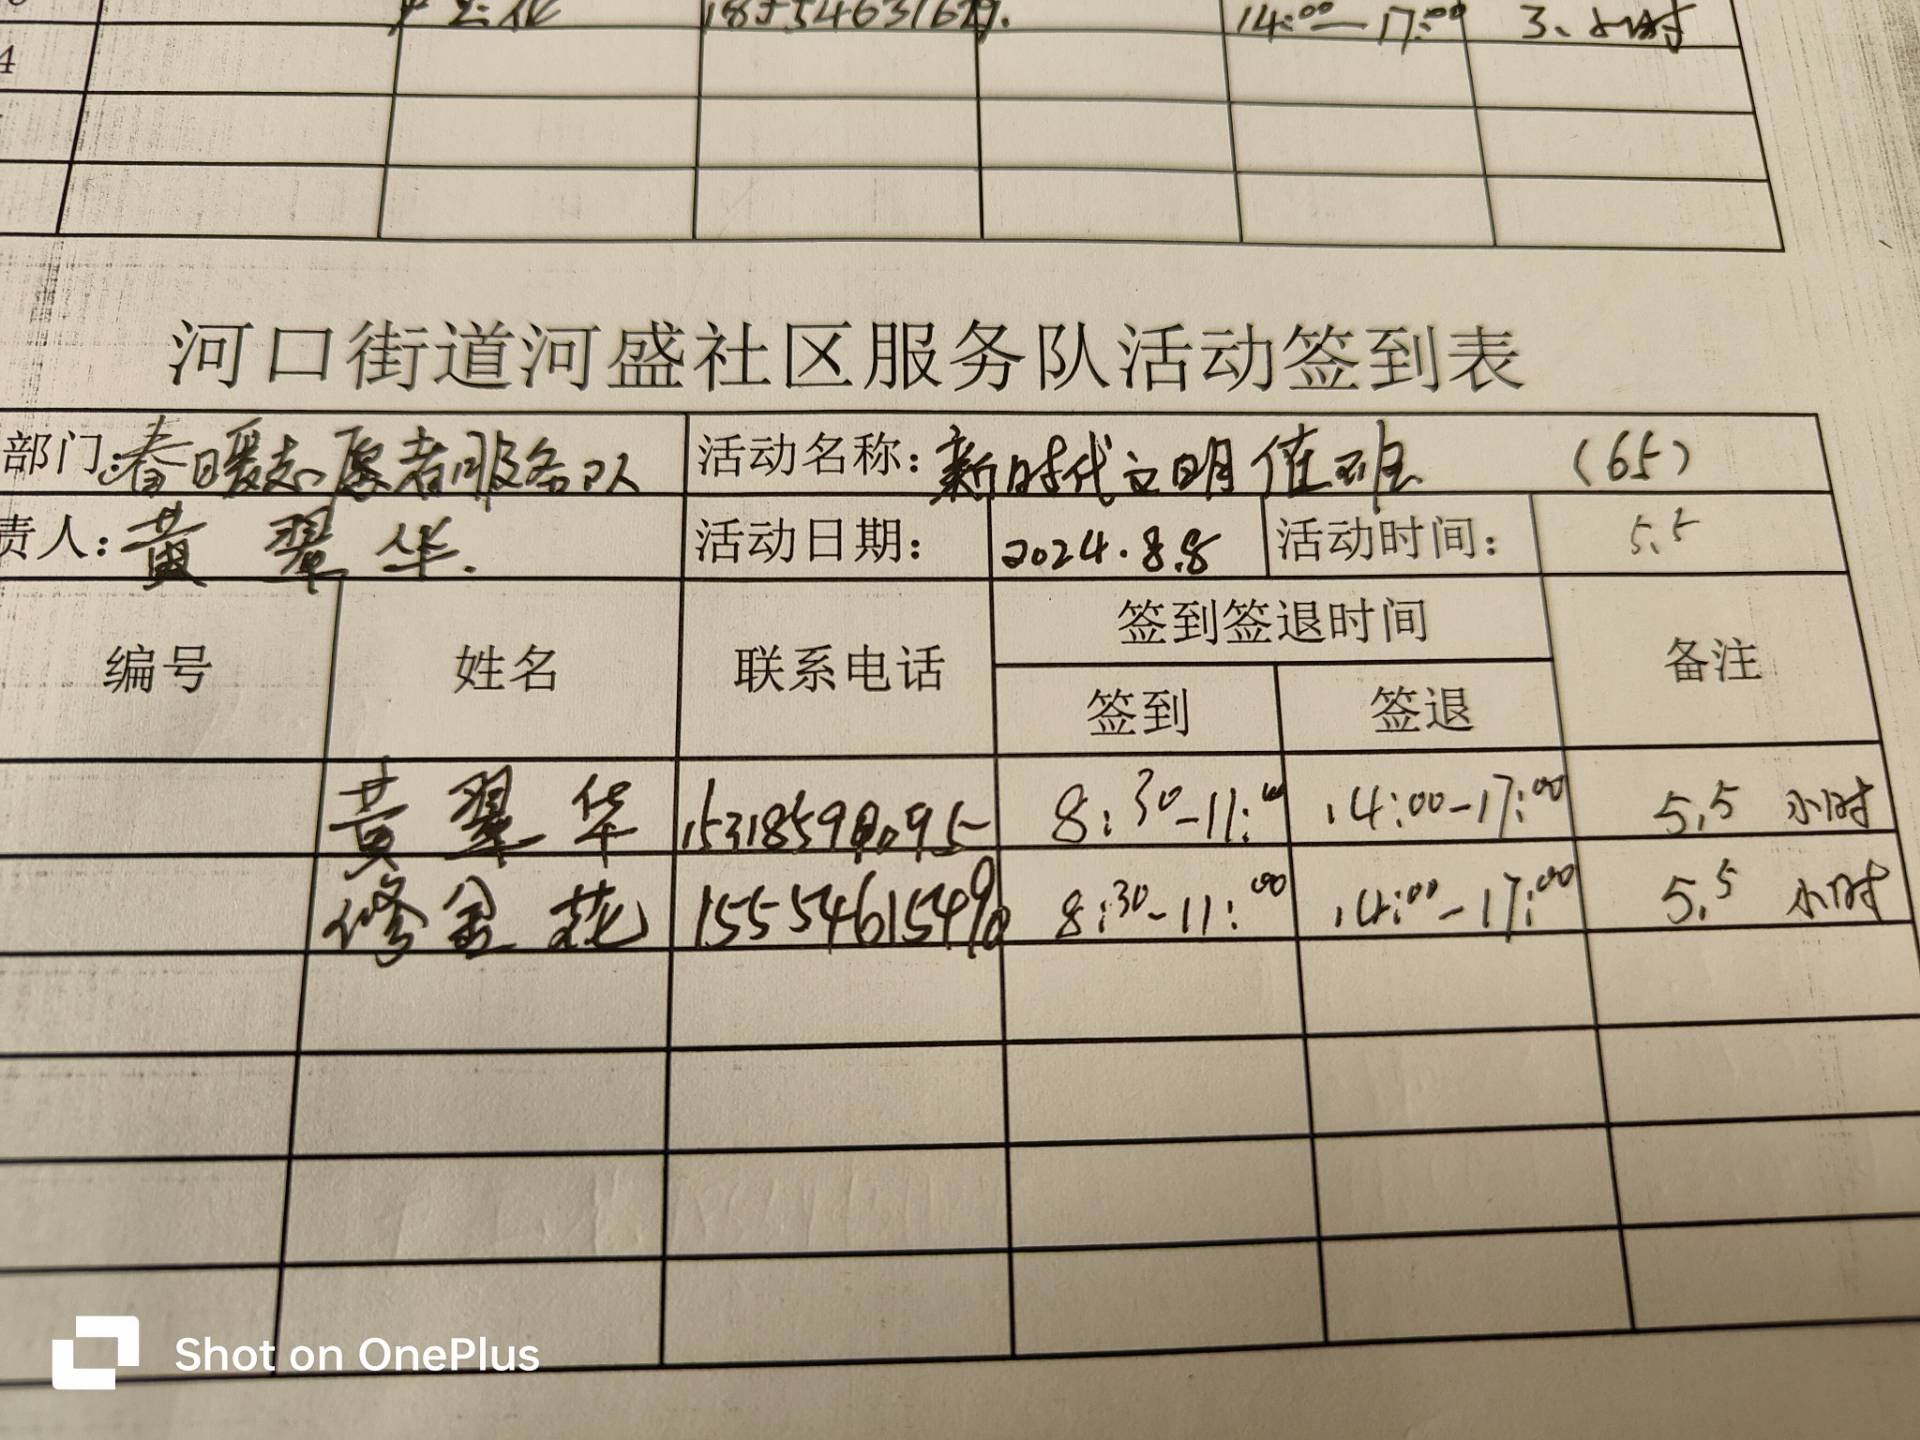 18554631679. 14:00-17:00 3、小时
4
河口街道河盛社区服务队活动签到表
部门:春暖志愿者服务队 活动名称: 新时代文明值班 (65)
责人: 黄翠华. 活动日期: 2024.8.8 活动时间: 5.5
编号 姓名 联系电话 签到签退时间 备注
签到 签退
黄翠华 8:30-11:00 14:00-17:00 5.5 小时
修金花 8:30-11:00 14:00-17:00 5.5 小时
Shot on OnePlus